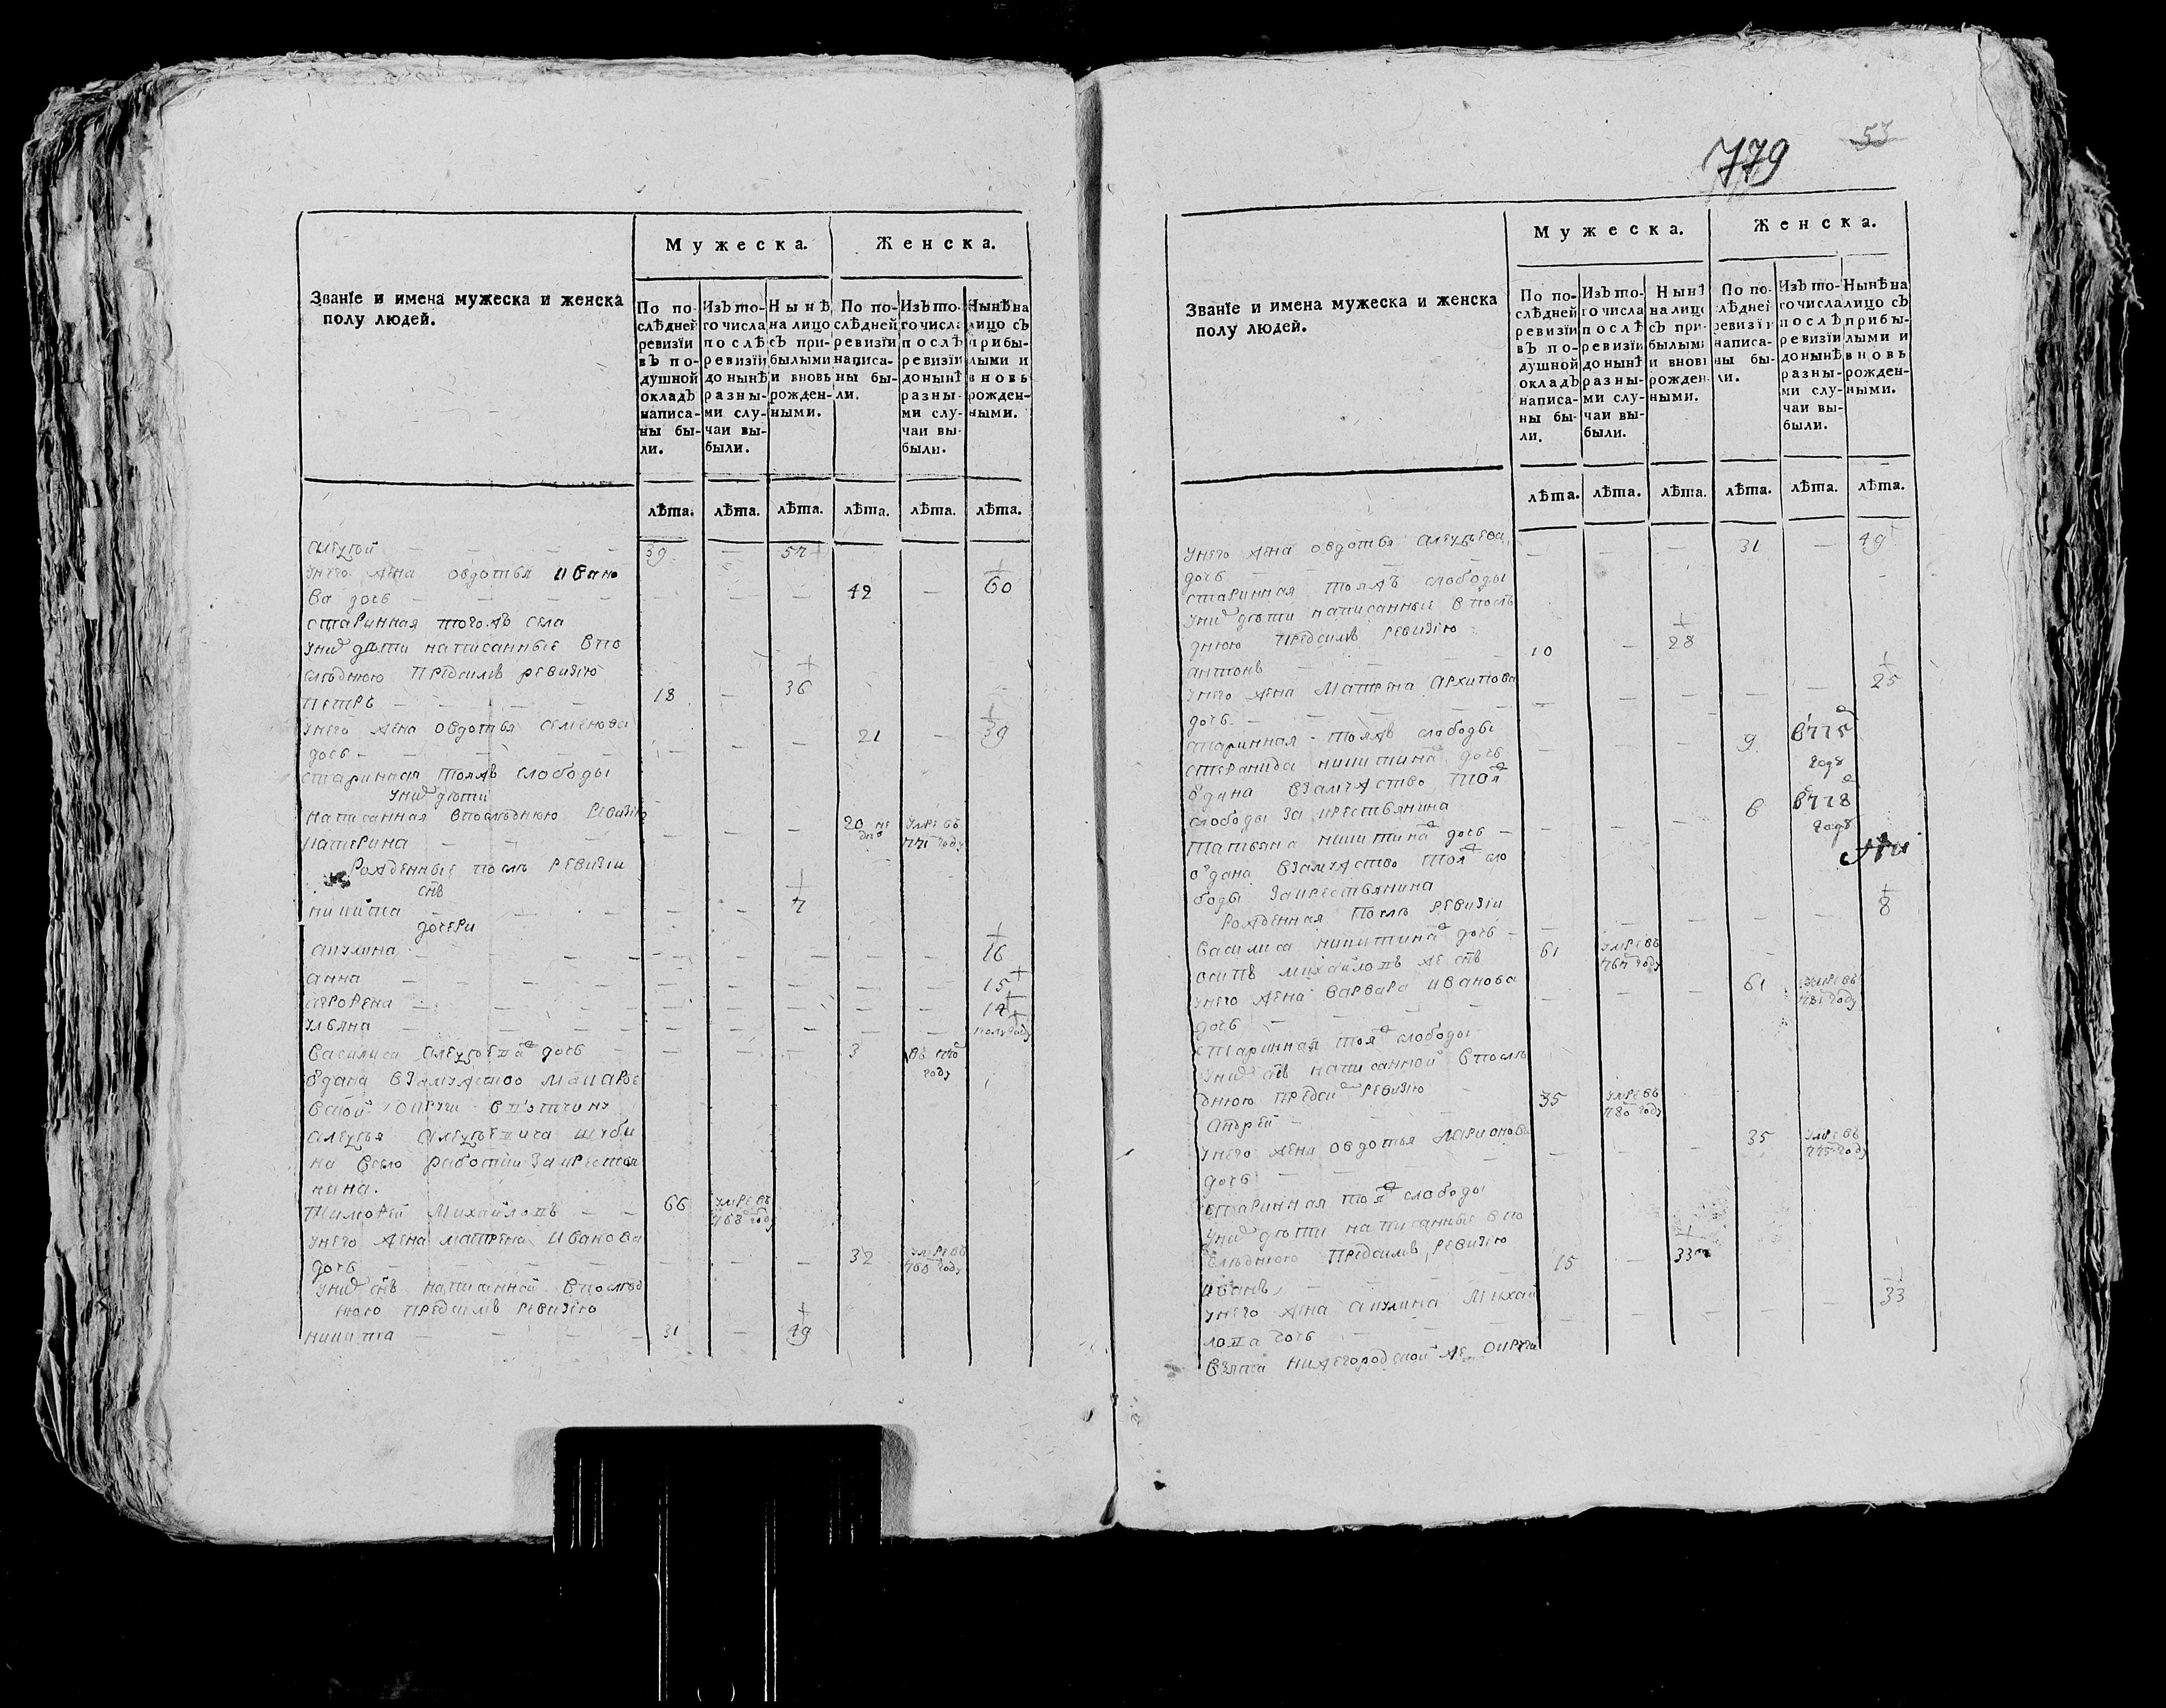 Званїе и имена мужеска и женска
полу людей.
Мужеска.
Женска.
По по-
слѣдней
ревизїи
въ по-
душной
окладъ
написа-
ны бы-
ли.
Изъ то-
го числа
послѣ
ревизїи
до нынѣ
разны-
ми слу-
чаи вы-
были.
Нынѣ
на лицо
съ при-
былыми
и вновь
рожден-
ными.
По по-
слѣдней
ревизїи
написа-
ны бы-
ли.
Изъ то-
го числа
послѣ
ревизїи
до нынѣ
разны-
ми слу-
чаи вы-
были.
Нынѣ на
лицо съ
прибы-
лыми и
вновь
рожден-
ными.
лѣта. лѣта. лѣта. лѣта. лѣта. лѣта.
39 — 57
унего жена овдотья ивано
ва дочь — — — — — — 42 — 60
старинная того жъ села
уних дѣти написанные впо
слѣднюю пред симъ ревизїю
петръ — — — 18 — 36
унего жена овдотья семенова
дочь — — — — — — 21 — 39
старинная тояжъ слободы
уних дѣти
написанная впослѣднюю ревизїю
катерина — — — — — 20 не умре въ
771 году
Рожденные послѣ ревизїи
снъ
никита — — — 7
дочери
акулина — — — — — 16
анна — — — — — 15
— — — — — 12
ульяна — — — — — полугоду
василиса дочь — — — — 3 въ
году
одана взамужство макарье
вской округи вотчину
на село работки закрестья
нина.
тимофей михайловъ — — 66 умре въ
768 году
унего жена матрена иванова
дочь — — — — — 32 умре въ
768 году
уних снъ написанной впослѣд
нюю пред симъ ревизїю
никита — — — — 31 — 49
779
53
Званїе и имена мужеска и женска
полу людей.
Мужеска.
Женска.
По по-
слѣдней
ревизїи
въ по-
душной
окладъ
написа-
ны бы-
ли.
Изъ то-
го числа
послѣ
ревизїи
до нынѣ
разны-
ми слу-
чаи вы-
были.
Нынѣ
на лицо
съ при-
былыми
и вновь
рожден-
ными.
По по-
слѣдней
ревизїи
написа-
ны бы-
ли.
Изъ то-
го числа
послѣ
ревизїи
до нынѣ
разны-
ми слу-
чаи вы-
были.
Нынѣ на
лицо съ
прибы-
лыми и
вновь
рожден-
ными.
лѣта. лѣта. лѣта. лѣта. лѣта. лѣта.
унего жена овдотья
дочь — — — — — 31 — 49
старинная тояжъ слободы
уних дѣти написанные впослѣ
днюю пред симъ ревизїю
антонъ — — — — 10 — 28
унего жена матрена архипова
дочь — — — — — — 25
старинная тояжъ слободы
степанида никитина дочь — — — 9 в 775
годѣ
одана взамужство тояж
слободы за крестьянина
татьяна никитина дочь — — — — 6 в 778
годѣ
одана взамужство тояж сло
боды закрестьянина
Рожденная послѣ ревизїи
василиса никитина дочь — — — — — — 8
осипъ михайловъ же снъ 61 умре въ
767 году
унего жена варвара иванова
дочь — — — — — — 61 умре въ
781 году
старинная тояж слободы
уних снъ написанной впослѣ
днюю пред сим ревизїю
андрей — 35 умре въ
780 году
унего жена овдотья ларионова
дочь — — — — — 35 умре въ
775 году
старинная тояж слободы
уних дѣти написанные впо
слѣднюю пред симъ ревизїю
иванъ — — — — 15 — 33
унего жена акулина михай
лова дочь — — — — — — 33
взята нижегородской же округи